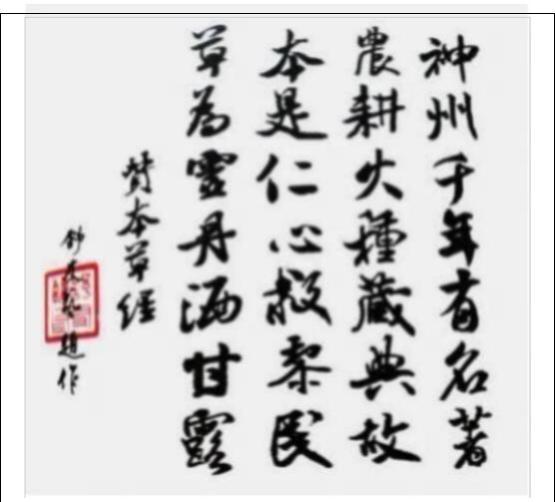 神州千年有名著
農耕火種藏典故
本是仁心救黎民
草為靈丹洒甘露
賛本草經